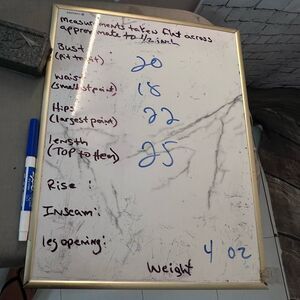 measurements taken flat across
approximate to 1/2 inch
Bust :
(Pit to Pit) 20
Waist
(smallest point) 18
Hips
(largest point) 22
length
(TOP to Hem) 25
Rise :
Inseam :
leg opening :
4 oz
Weight